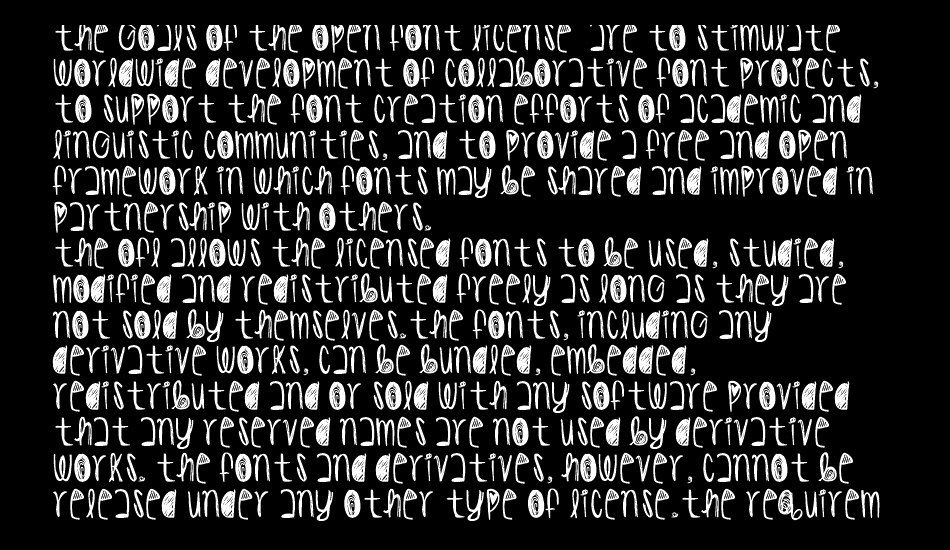 the goals of the open font license are to stimulate
worldwide development of collaborative font projects,
to support the font creation efforts of academic and
linguistic communities, and to provide a free and open
framework in which fonts may be shared and improved in
partnership with others.
the ofl allows the licensed fonts to be used, studied,
modified and redistributed freely as long as they are
not sold by themselves.the fonts, including any
derivative works, can be bundled, embedded,
redistributed and or sold with any software provided
that any reserved names are not used by derivative
works. the fonts and derivatives, however, cannot be
released under any other type of license.the requirem